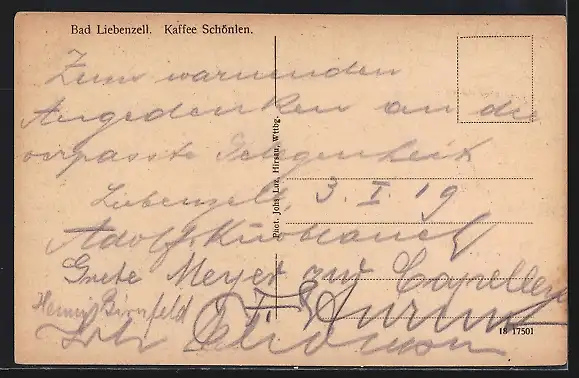 Bad Liebenzell. Kaffee Schönlen.
Zum warnenden
Angedenken an die
verpasste Gelegenheit
Liebenzell, 3. I. 19
Adolf Knoblauch
Grete Meyer zur Capellen
Henny Birnfeld
Phot. Johs. Luz, Hirsau, Wttbg.
18 17501